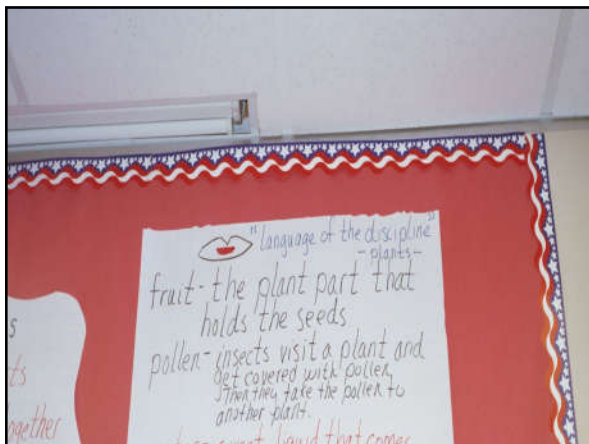 "language of the discipline"
-plants-
fruit- the plant part that
holds the seeds
pollen- insects visit a plant and
get covered with pollen,
then they take the pollen to
another plant.
sweet liquid that comes
s
ts
together